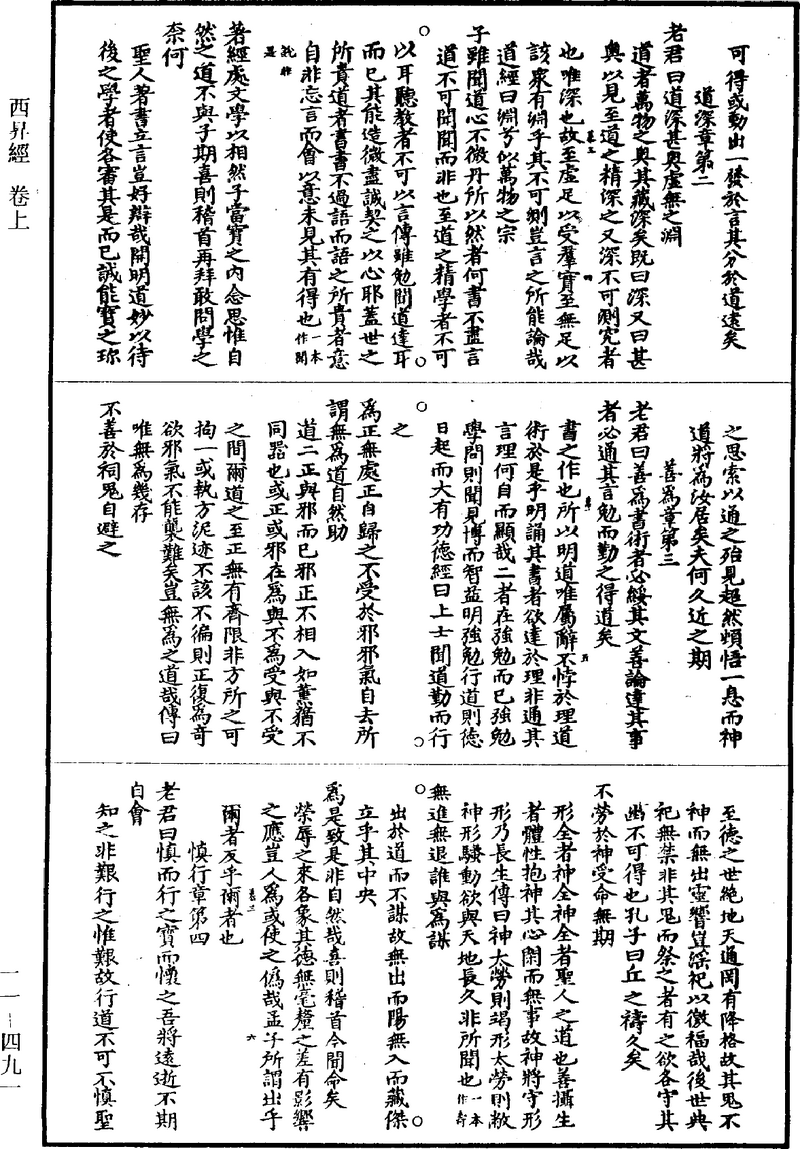 西昇經 卷上
可得或動出一發於言其分於道遠矣
道深章第二
老君曰道深甚奧虛無之淵
道者萬物之奧其藏深矣既曰深又曰甚
奧以見至道之精深之又深不可測究者
也唯深也故至虛足以受羣實至無足以
該衆有淵乎其不可測豈言之所能論哉
道經曰淵兮似萬物之宗
子雖聞道心不微丹所以然者何書不盡言
道不可聞聞而非也至道之精學者不可
以耳聽教者不可以言傳雖勉聞道達耳
而已其能造微盡誠契之以心耶蓋世之
所貴道者書書不過語而語之所貴者意
自非忘言而會以意未見其有得也一本作聞
著經處文學以相然子當寶之内念思惟自
然之道不與子期喜則稽首再拜敢問學之
柰何
聖人著書立言豈好辯哉開明道妙以待
後之學者使各審其是而已誠能寶之珎
之思索以通之殆見超然頓悟一息而神
道將為汝居矣夫何久近之期
善為章第三
老君曰善為書術者必綏其文善論達其事
者必通其言勉而勤之得道矣
書之作也所以明道唯屬辭不悖於理道
術於是乎明誦其書者欲達於理非通其
言理何自而顯哉二者在強勉而已強勉
學問則聞見博而智益明強勉行道則德
日起而大有功德經曰上士聞道勤而行
之
為正無處正自歸之不受於邪邪氣自去所
謂無為道自然助
道二正與邪而已邪正不相入如薰蕕不
同器也或正或邪在為與不為受與不受
之間爾道之至正無有齊限非方所之可
拘一或執方泥迹不該不徧則正復為奇
欲邪氣不能襲難矣豈無為之道哉傳曰
唯無為幾存
不善於祠鬼自避之
至德之世絶地天通罔有降格故其鬼不
神而無出靈響豈滛祀以徼福哉後世典
祀無禁非其鬼而祭之者有之欲各守其
幽不可得也孔子曰丘之禱久矣
不勞於神受命無期
形全者神全神全者聖人之道也善攝生
者體性抱神其心閑而無事故神將守形
形乃長生傳曰神太勞則竭形太勞則敝
神形騷動欲與天地長久非所聞也一本作壽
無進無退誰與為謀
出於道而不謀故無出而陽無入而藏傑
立乎其中央
為是致是非自然哉喜則稽首今聞命矣
榮辱之來各象其德無毫釐之差有影響
之應豈人為或使之僞哉孟子所謂出乎
爾者反乎爾者也
慎行章第四
老君曰慎而行之寶而懷之吾將遠逝不期
自會
知之非艱行之惟艱故行道不可不慎聖
一一－四九一